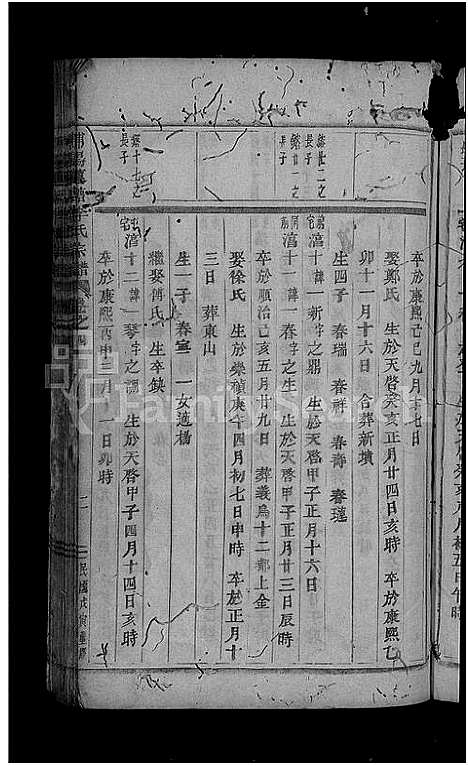 卒於康熙己巳九月十七日
娶鄭氏 生於天啓癸亥正月廿四日亥時 卒於康熙乙
卯十一月十六日 合葬新墳
鎡廿二之
長子
濳十一 諱一新 字之鼎 生於天啓甲子正月十六日
生四子 春瑞 春祥 春 春蓮
之
長子
濳十一 諱一春 字之生 生於天啓甲子正月廿三日辰時
卒於順治己亥五月廿九日 葬義烏十二都上金
娶徐氏 生於崇禎庚午四月初七日申時 卒於正月十
三日 葬東山
生一子 春寧 一女適楊
繼娶傅氏 生卒缺
十七之
長子
濳十二 諱一琴 字之調 生於天啓甲子四月十四日亥時
卒於康熙丙申三月 一日卯時
氏宗譜 卷之
二
民國戊寅重修